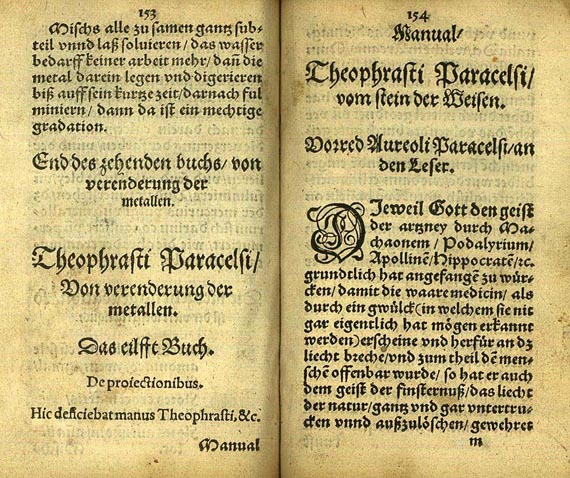 153
Mischs alle zu samen gantz sub⸗
teil vnnd laß soluieren / das wasser
bedarff keiner arbeit mehr / dañ die
metal darein legen vnd digerieren
biß auff sein kurtze zeit / darnach ful
miniern / dann da ist ein mechtige
gradation.
End des zehenden buchs / von
verenderung der
metallen.
Theophrasti Paracelsi /
Von verenderung der
metallen.
Das eilfft Buch.
De proiectionibus.
Hic deficiebat manus Theophrasti, &c.
Manual
154
Manual /
Theophrasti Paracelsi /
vom stein der Weisen.
Vorred Aureoli Paracelsi / an
den Leser.
DIeweil Gott den geist
der artzney durch Ma⸗
chaonem / Podalyrium /
Apollinē / Hippocratē / ꝛc.
grundtlich hat angefangē zu würc⸗
cken / damit die waare medicin / als
durch ein gwülck (in welchem sie nit
gar eigentlich hat mögen erkannt
werden) erscheine vnd herfür an dz
liecht breche / vnd zum theil dē men⸗
schē offenbar wurde / so hat er auch
dem geist der finsternuß / das liecht
der natur / gantz vnd gar vntertru⸗
cken vnnd außzulöschen / gewehret
m